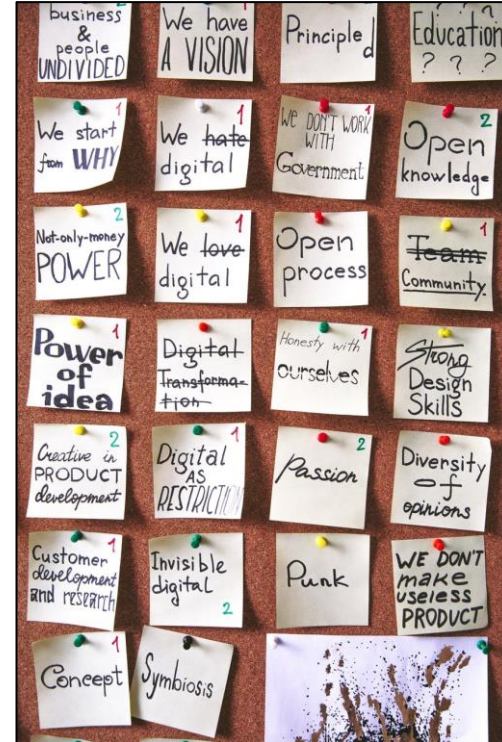 business
&
people
UNDIVIDED
We have
A VISION
Principled
Education
? ? ?
1
We start
from WHY
1
We hate
digital
1
WE DON'T WORK
WITH
Government
2
Open
knowledge
2
Not-only-money
POWER
1
We love
digital
Open
process
1
Team
Community
1
Power
of
idea
Digital
Transforma-
tion
1
Honesty with
ourselves
Strong
Design
Skills
2
Creative in
PRODUCT
development
1
Digital
AS
RESTRICTION
2
Passion
Diversity
of
opinions
1
Customer
development
and research
Invisible
digital
2
Punk
WE DON'T
make
useless
PRODUCT
1
Concept
Symbiosis